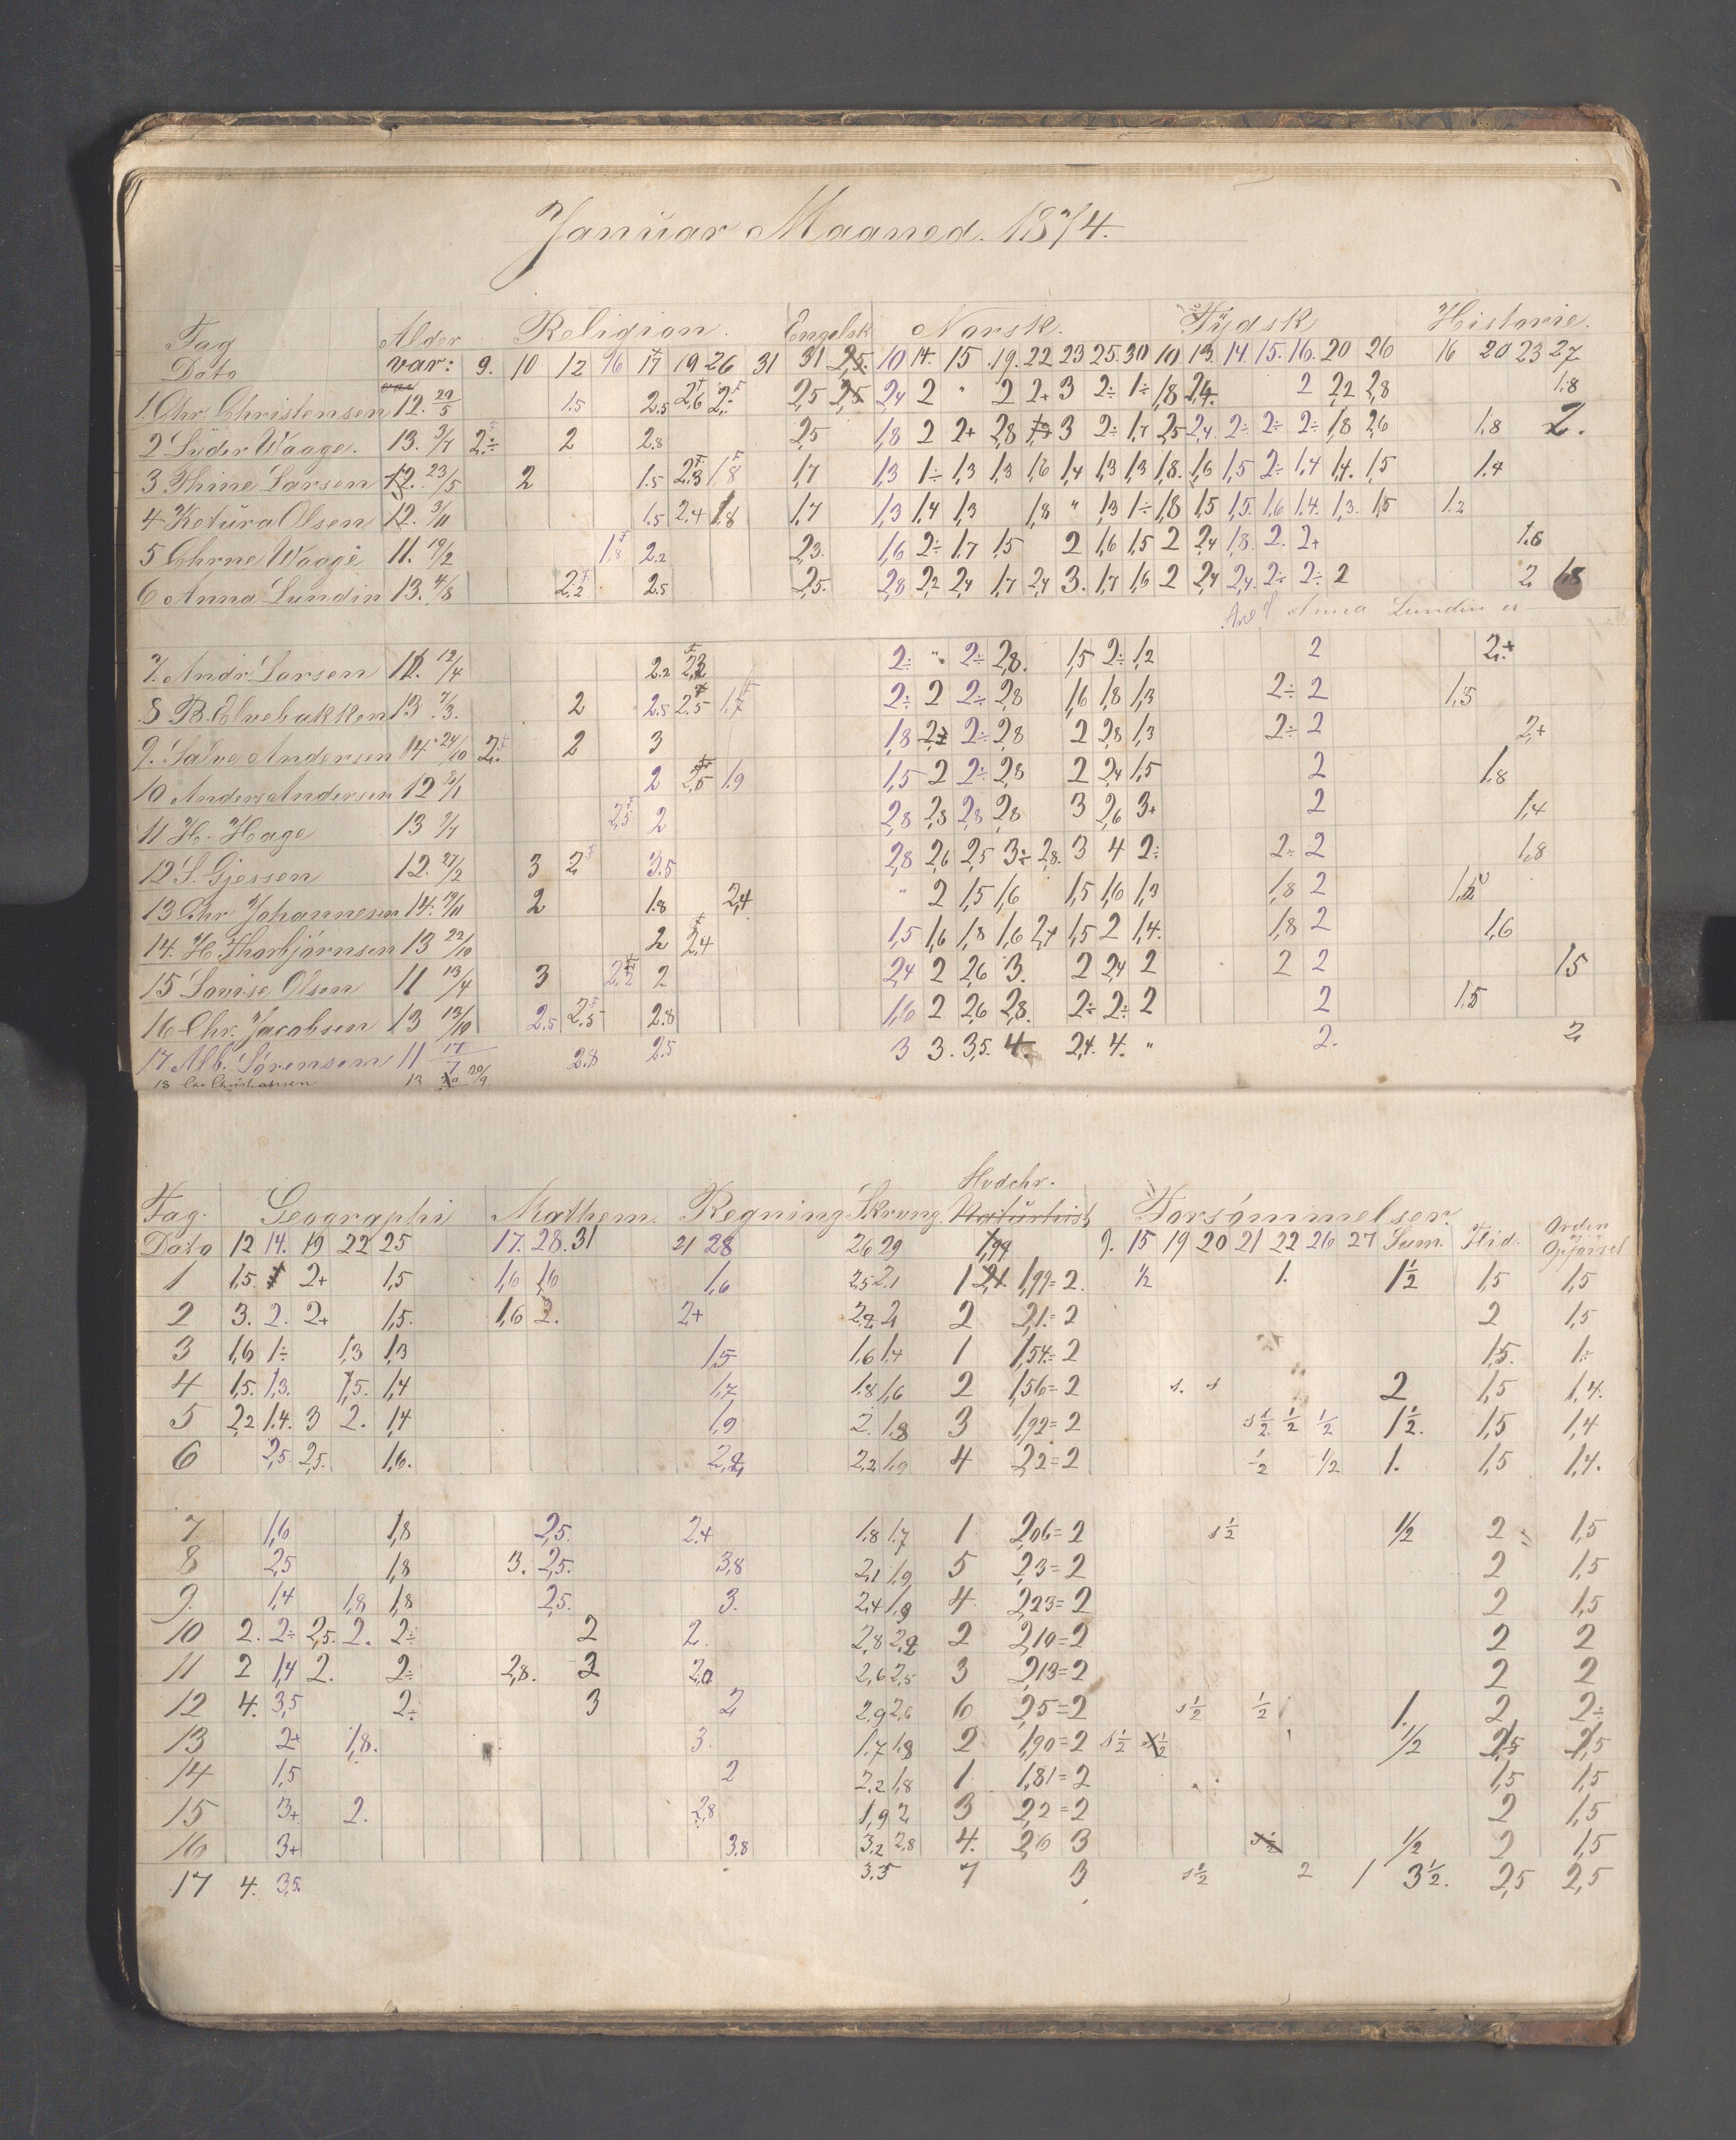 Januar Maaned. 1874.
Fag Alder Religion. Engelsk Norsk. Tydsk Historie.
Dato var: 9. 10 12 16 17 19 26 31 31 2,5. 10 14. 15 19. 22 23 25. 30 10 13. 14. 15. 16. 20 26 16 20 23 27
1. Chr. Christensen 12. 29/5 1.5 2.5 2,6 2,- 2,5 2,5 2,4 2 " 2 2+ 3 2÷ 1÷ 1,8 2,4. 2 2,2 2,8 1.8
2 Lüder Waage. 13. 3/7 2÷ 2 2.8 2,5 1,8 2 2+ 2,8 3 2÷ 1,7 2,5 2,4. 2÷ 2÷ 2÷ 1,8 2,6 1,8 2.
3 Thine Larsen 12. 23/5 2 1.5 2,3 1,8 1,7 1,3 1÷ 1,3 1,3 1,6 1,4 1,3 1,3 1,8. 1,6 1,5 2÷ 1,4 1,4. 1,5 1.4
4 Ketüra Olsen 12. 3/11 1.5 2,4 1,8 1,7 1,3 1,4 1,3 1,8 " 1,3 1÷ 1,8 1,5 1,5. 1,6 1.4. 1,3. 1,5 1.2
5 Chrne Waage 11. 19/2 1.8 2.2 2,3. 1,6 2÷ 1.7 1,5 2 1,6 1,5 2 2,4 1,8. 2. 2+ 1.6
6 Anna Lundin 13. 4/8 2,2 2.5 2,5. 2,8 2,2 2,4 1,7 2,4 3. 1,7 1,6 2 2,4 2,4. 2÷ 2÷ 2 2, 1,8
Anna Lundin er
7. Andr. Larsen 12. 12/4 2.2 2,2 2÷ " 2÷ 2,8. 1,5 2÷ 1,2 2 2,+
8 B. Elvebakken 13 7/3. 2 2.8 2.5 1,7 2÷ 2 2÷ 2,8 1,6 1,8 1,3 2÷ 2 1,5
9. Salve Andersen 14. 24/10 2. 2 3 1,8 2,+ 2÷ 2,8 2 2,8 1,3 2÷ 2 2,+
10 Anders Andersen 12 2 2,5 1.9 1,5 2 2÷ 2,8 2 2,4 1,5 2 1,8
11 H. Hage 13 9/7 2,5 2 2,8 2,8 2,8 2,8 3 2,6 3+ 2 1,4
12 S. Gjessen 12. 27/2 3 2, 3.5 2,8 2,6 2,5 3÷ 2,8. 3 4 2÷ 2÷ 2 1,8
13 Chr Johannesen 14. 19/11 2 1.8 2,4 " 2 1,5 1,6 1,5 1,6 1,3 1,8 2
14. H Thorbjörnsen 13 22/10 2 2,4 1,5 1,6 1,8 1,6 2,4 1,5 2 1,4. 1,8 2 1,6
15 Lovise Olsen 11 13/4 3 2,2 2 2,4 2 2,6 3. 2 2,4 2 2 2 1,5
16 Chr. Jacobsen 13 13/10 2.5 2,5 2.8 1,6 2 2,6 2,8. 2÷ 2÷ 2 2 1.5
17 Alb. Sørensen 11 17/7 2.8 2.5 3 3. 3,5. 4. 2,4. 4. " 2. 2
18 Christiansen 13 20/9
Hvdchr.
Fag. Geographi Mathem. Regning Skrvng. Naturhist Forsömmelser. Orden
Dato 12 14. 19 22 25 17. 28. 31 21 28 26 29 1,99 9. 15 19 20 21 22 26 27 Sum. Flid. Opförsel
1 1,5. 2+ 1,5 1,6 1,6 1,6 2,5 2.1 1 2,1. 1,99=2. 1/2 1. 1 1/2 1,5 1,5
2 3. 2. 2+ 1,5. 1,6 2. 2+ 2,2 2, 2 2,1.=2 2 1,5
3 1,6 1÷ 1,3 1,3 1,5 1,6 1,4 1 1,54.=2 1,5. 1÷
4 1,5. 1,3. 1,5. 1,4 1,7 1.8 1,6 2 1,56=2 s. s 2 1,5 1,4.
5 2,2 1.4. 3 2. 1,4 1,9 2. 1,8 3 1,92=2 s 1/2 1/2 1/2 1 1/2. 1,5 1,4
6 2,5. 2,5. 1,6. 2,2 2,2 1,9 4 2,2=2 1/2 1/2 1. 1,5 1,4.
7 1,6 1,8 2,5. 2,4 1.8 1.7 1 2,06=2 s 1/2 1/2 2 1,5
8 2,5 1,8 3. 2,5. 3,8 2,1 1,9 5 2,3=2 2 1,5
9. 1,4 1,8 1,8 2,5. 3. 2,4 1,9 4 2,23=2 2 1,5
10 2. 2÷ 2,5. 2. 2÷ 2 2. 2,8 2,2 2 2,10=2 2 2
11 2 1,4 2. 2÷ 2,8. 2 2,0 2,6 2,5 3 2,13=2 2 2
12 4. 3,5 2÷ 3 2, 2,9 2,6 6 2,5=2 s 1/2 1/2 1. 2 2÷
13 2+ 1,8. 3. 1.7 1,8 2 1,90=2 s 1/2 1/2 2,5 2,5
14 1,5 2 2,2 1,8 1 1,81=2 1,5 1,5
15 3+ 2. 2,8 1,9 2 3 2,2=2 2 1,5
16 3+ 3,8 3,2 2,8 4. 2,6 3 1/2 2 1,5
17 4. 3,5. 3.5 7 3 s 1/2 2 1 3 1/2. 2,5 2,5